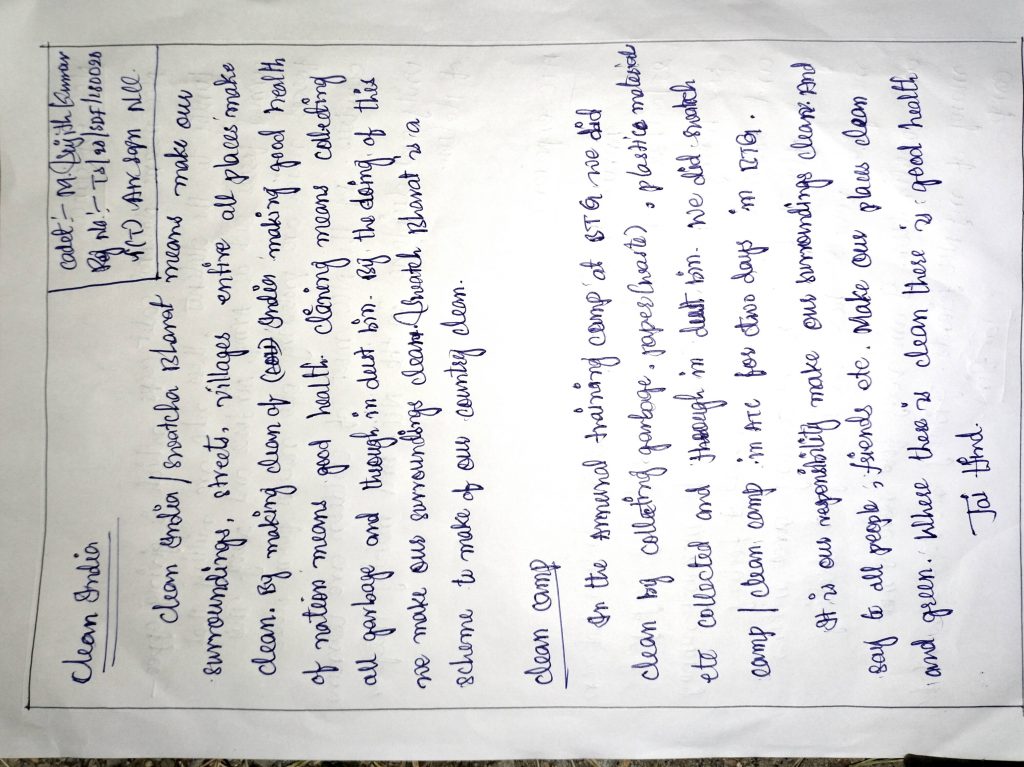 Clean India
Cadet:- M. Sujith Kumar
Reg No:- TS/20/SDF/180020
4(T) Arc sqn NCC.
clean India / swatcha Bharat means make our
surroundings, streets, villages entire all places make
clean. By making clean of (our) India making good health
of nation means good health. clening means collecting
all garbage and through in dust bin. By the doing of this
we make our surroundings clean. Shwatch Bharat is a
scheme to make of our country clean.
clean camp
In the Annual training camp at BTG we did
clean by collecting garbage, papers(waste), plastic materials
etc collected and through in dust bin. We did swatch
camp / clean camp in ATC for two days in BTG.
It is our responsibility make our surroundings clean. And
say to all people, friends etc. Make our places clean
and green. Where there is clean there is good health
Jai Hind.